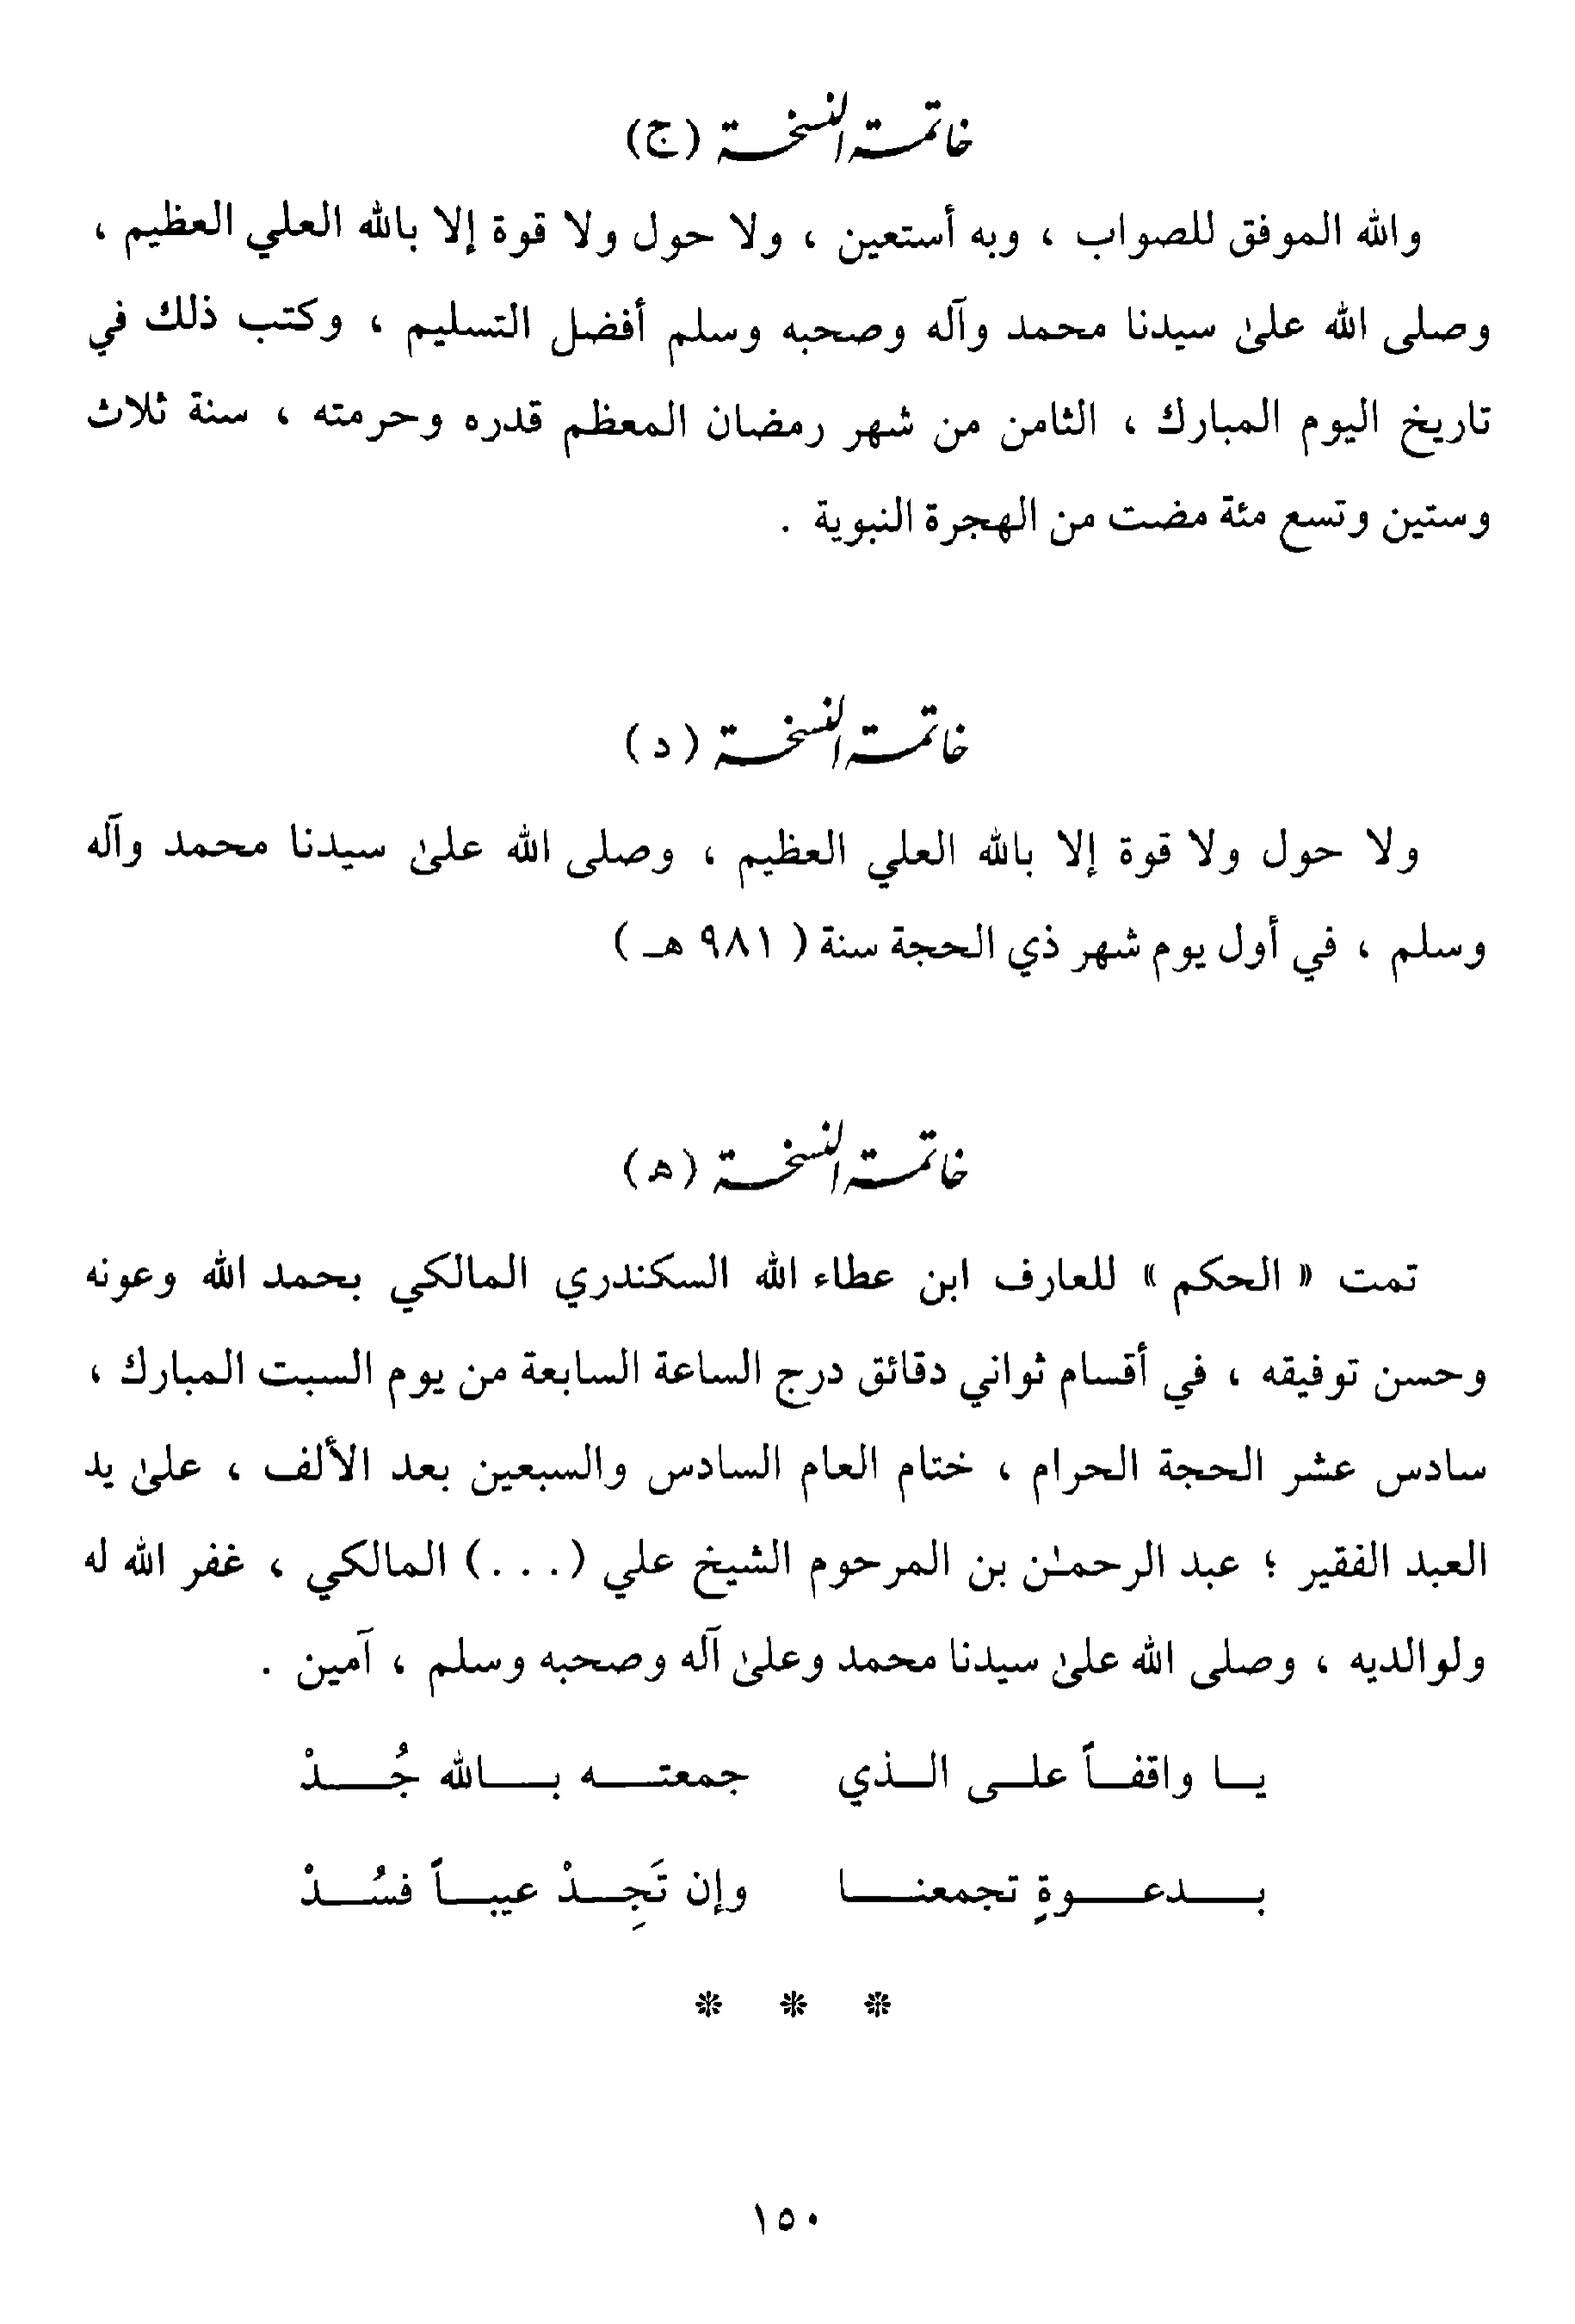 خاتمة النسخة (ج)
والله الموفق للصواب ، وبه أستعين ، ولا حول ولا قوة إلا بالله العلي العظيم ،
وصلى الله علىٰ سيدنا محمد وآله وصحبه وسلم أفضل التسليم ، وكتب ذلك في
تاريخ اليوم المبارك ، الثامن من شهر رمضان المعظم قدره وحرمته ، سنة ثلاث
وستين وتسع مئة مضت من الهجرة النبوية .
خاتمة النسخة ( د )
ولا حول ولا قوة إلا بالله العلي العظيم ، وصلى الله علىٰ سيدنا محمد وآله
وسلم ، في أول يوم شهر ذي الحجة سنة ( ٩٨١ هـ )
خاتمة النسخة (هـ)
تمت « الحكم » للعارف ابن عطاء الله السكندري المالكي بحمد الله وعونه
وحسن توفيقه ، في أقسام ثواني دقائق درج الساعة السابعة من يوم السبت المبارك ،
سادس عشر الحجة الحرام ، ختام العام السادس والسبعين بعد الألف ، علىٰ يد
العبد الفقير ؛ عبد الرحمـٰن بن المرحوم الشيخ علي (. . .) المالكي ، غفر الله له
ولوالديه ، وصلى الله علىٰ سيدنا محمد وعلىٰ آله وصحبه وسلم ، آمين .
يا واقفاً على الذي جمعته بالله جُدْ
بدعوةٍ تجمعنا وإن تَجِدْ عيباً فسُدْ
* * *
١٥٠